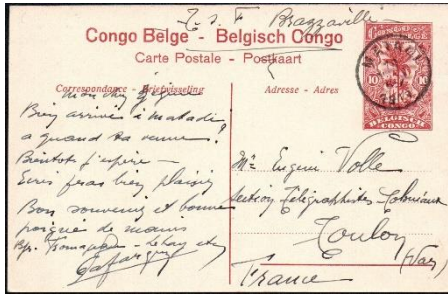 T. S. F Brazzaville
Congo Belge - Belgisch Congo
Carte Postale - Postkaart
CONGO BELGE
10 10
BELGISCH
CONGO
Correspondance - Briefwisseling
Adresse - Adres
mon cher
Bien arrivé à matadi
a quand ta venue?
Bientot j'espère -
Ecris feras bien plaisir
Bon souvenir et bonne
poigne de mains
Mr Eugène Volle
Section Télégraphistes Coloniaux
Toulon
(Var)
France